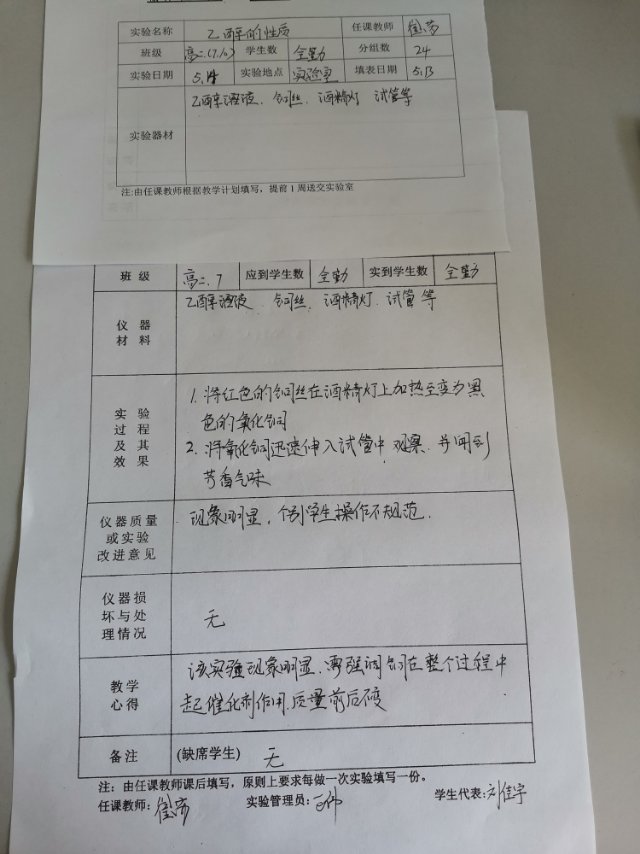 实验名称 乙醇的性质 任课教师
班级 高二(7.10) 学生数 全勤 分组数 24
实验日期 5.14 实验地点 实验室 填表日期 5.13
实验器材 乙醇溶液、铜丝、酒精灯 试管等
注:由任课教师根据教学计划填写，提前1周送交实验室
班级 高二.7 应到学生数 全勤 实到学生数 全勤
仪器材料 乙醇溶液、铜丝、酒精灯、试管等
实验过程及其效果
1.将红色的铜丝在酒精灯上加热至变为黑
色的氧化铜
2.将氧化铜迅速伸入试管中观察,并闻到
芳香气味
仪器质量或实验改进意见 现象明显，个别学生操作不规范.
仪器损坏与处理情况 无
教学心得
该实验现象明显,再强调铜在整个过程中
起催化剂作用.质量前后不变
备注 (缺席学生) 无
注：由任课教师课后填写，原则上要求每做一次实验填写一份。
任课教师: 实验管理员: 学生代表:刘佳宇